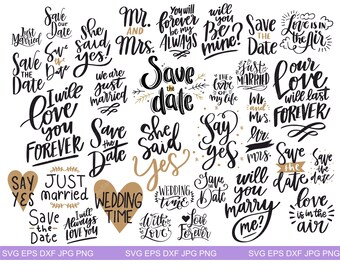 Just
Married
Save
our
Date
She
said
yes!
Mr.
AND
Mrs.
You will
forever
be my
Always
will
you
Be
mine?
Save
the
Date
Love is in
the air
Save
THE
Date
Save
the
Date
I will
love
you
FOREVER
we are
just
married
Save
the
date
the
LOVE
of
my life
JUST
MARRIED
Mr.
and
Mrs.
our
Love
will last
FOREVER
Save
the
Date
She
said
yes
Say
yes
Mr.
Mrs.
Save
the
date
Save
the
date
SAY
YES
JUST
married
WEDDING
TIME
WEDDING
time
Save
the
Date
will
you
marry
me?
Save
the
Date
I will
Always
LOVE YOU
With
Love
Love
Forever
love
is in the
air
SVG EPS DXF JPG PNG
SVG EPS DXF JPG PNG
SVG EPS DXF JPG PNG